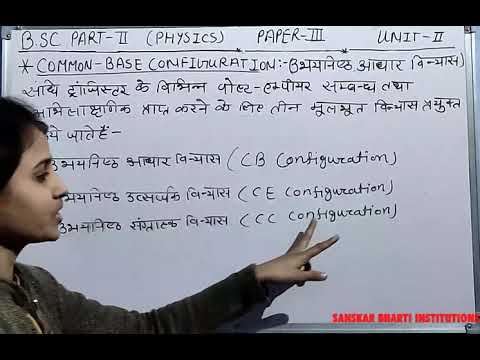 B.SC PART-II (PHYSICS) PAPER-III UNIT-II
* COMMON-BASE CONFIGURATION:- उभयनिष्ठ आधार विन्यास)
संधि ट्रांजिस्टर के विभिन्न वोल्ट-एम्पीयर सम्बन्ध तथा
अभिलाक्षणिक प्राप्त करने के लिए तीन मूलभूत विन्यास प्रयुक्त
किये जाते हैं-
उभयनिष्ठ आधार विन्यास (CB Configuration)
उभयनिष्ठ उत्सर्जक विन्यास (CE Configuration)
उभयनिष्ठ संग्राहक विन्यास (CCC Configuration)
SANSKAR BHARTI INSTITUTIONS